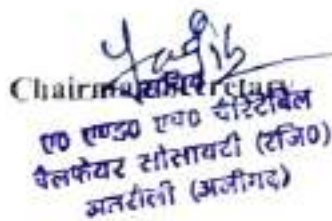 Chairman/Secretary
सचिव
ए० एण्ड० एच० चैरिटेबिल
वैलफेयर सोसायटी (रजि०)
अतरौली (अलीगढ़)